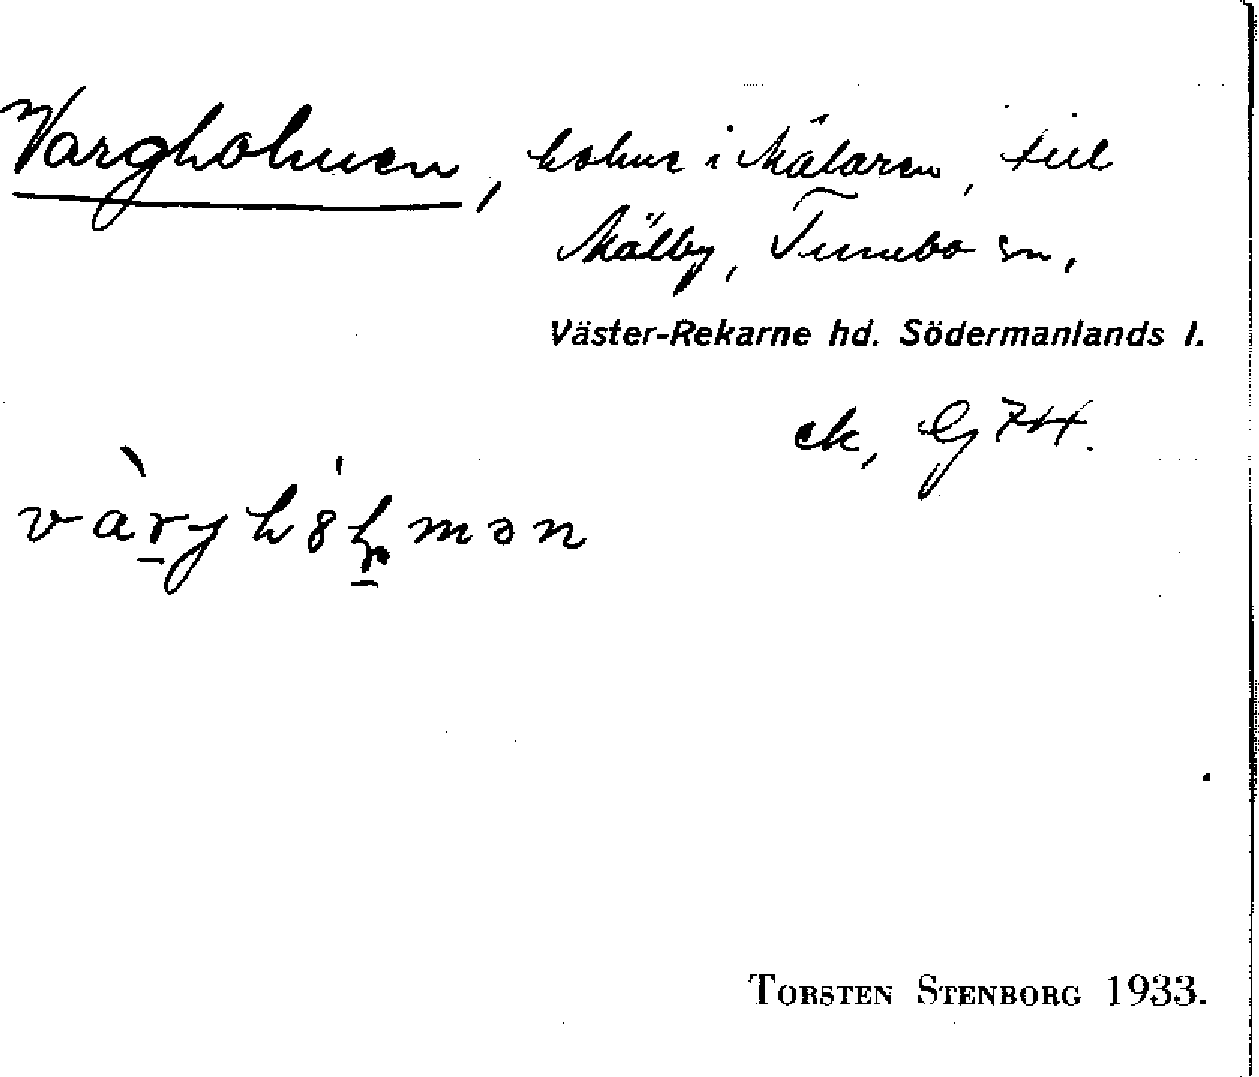 Vargholmen, holme i Mälaren, till
Mälby, Tumbo sn,
Väster-Rekarne hd. Södermanlands l.
ek, G 74.
TORSTEN STENBORG 1933.